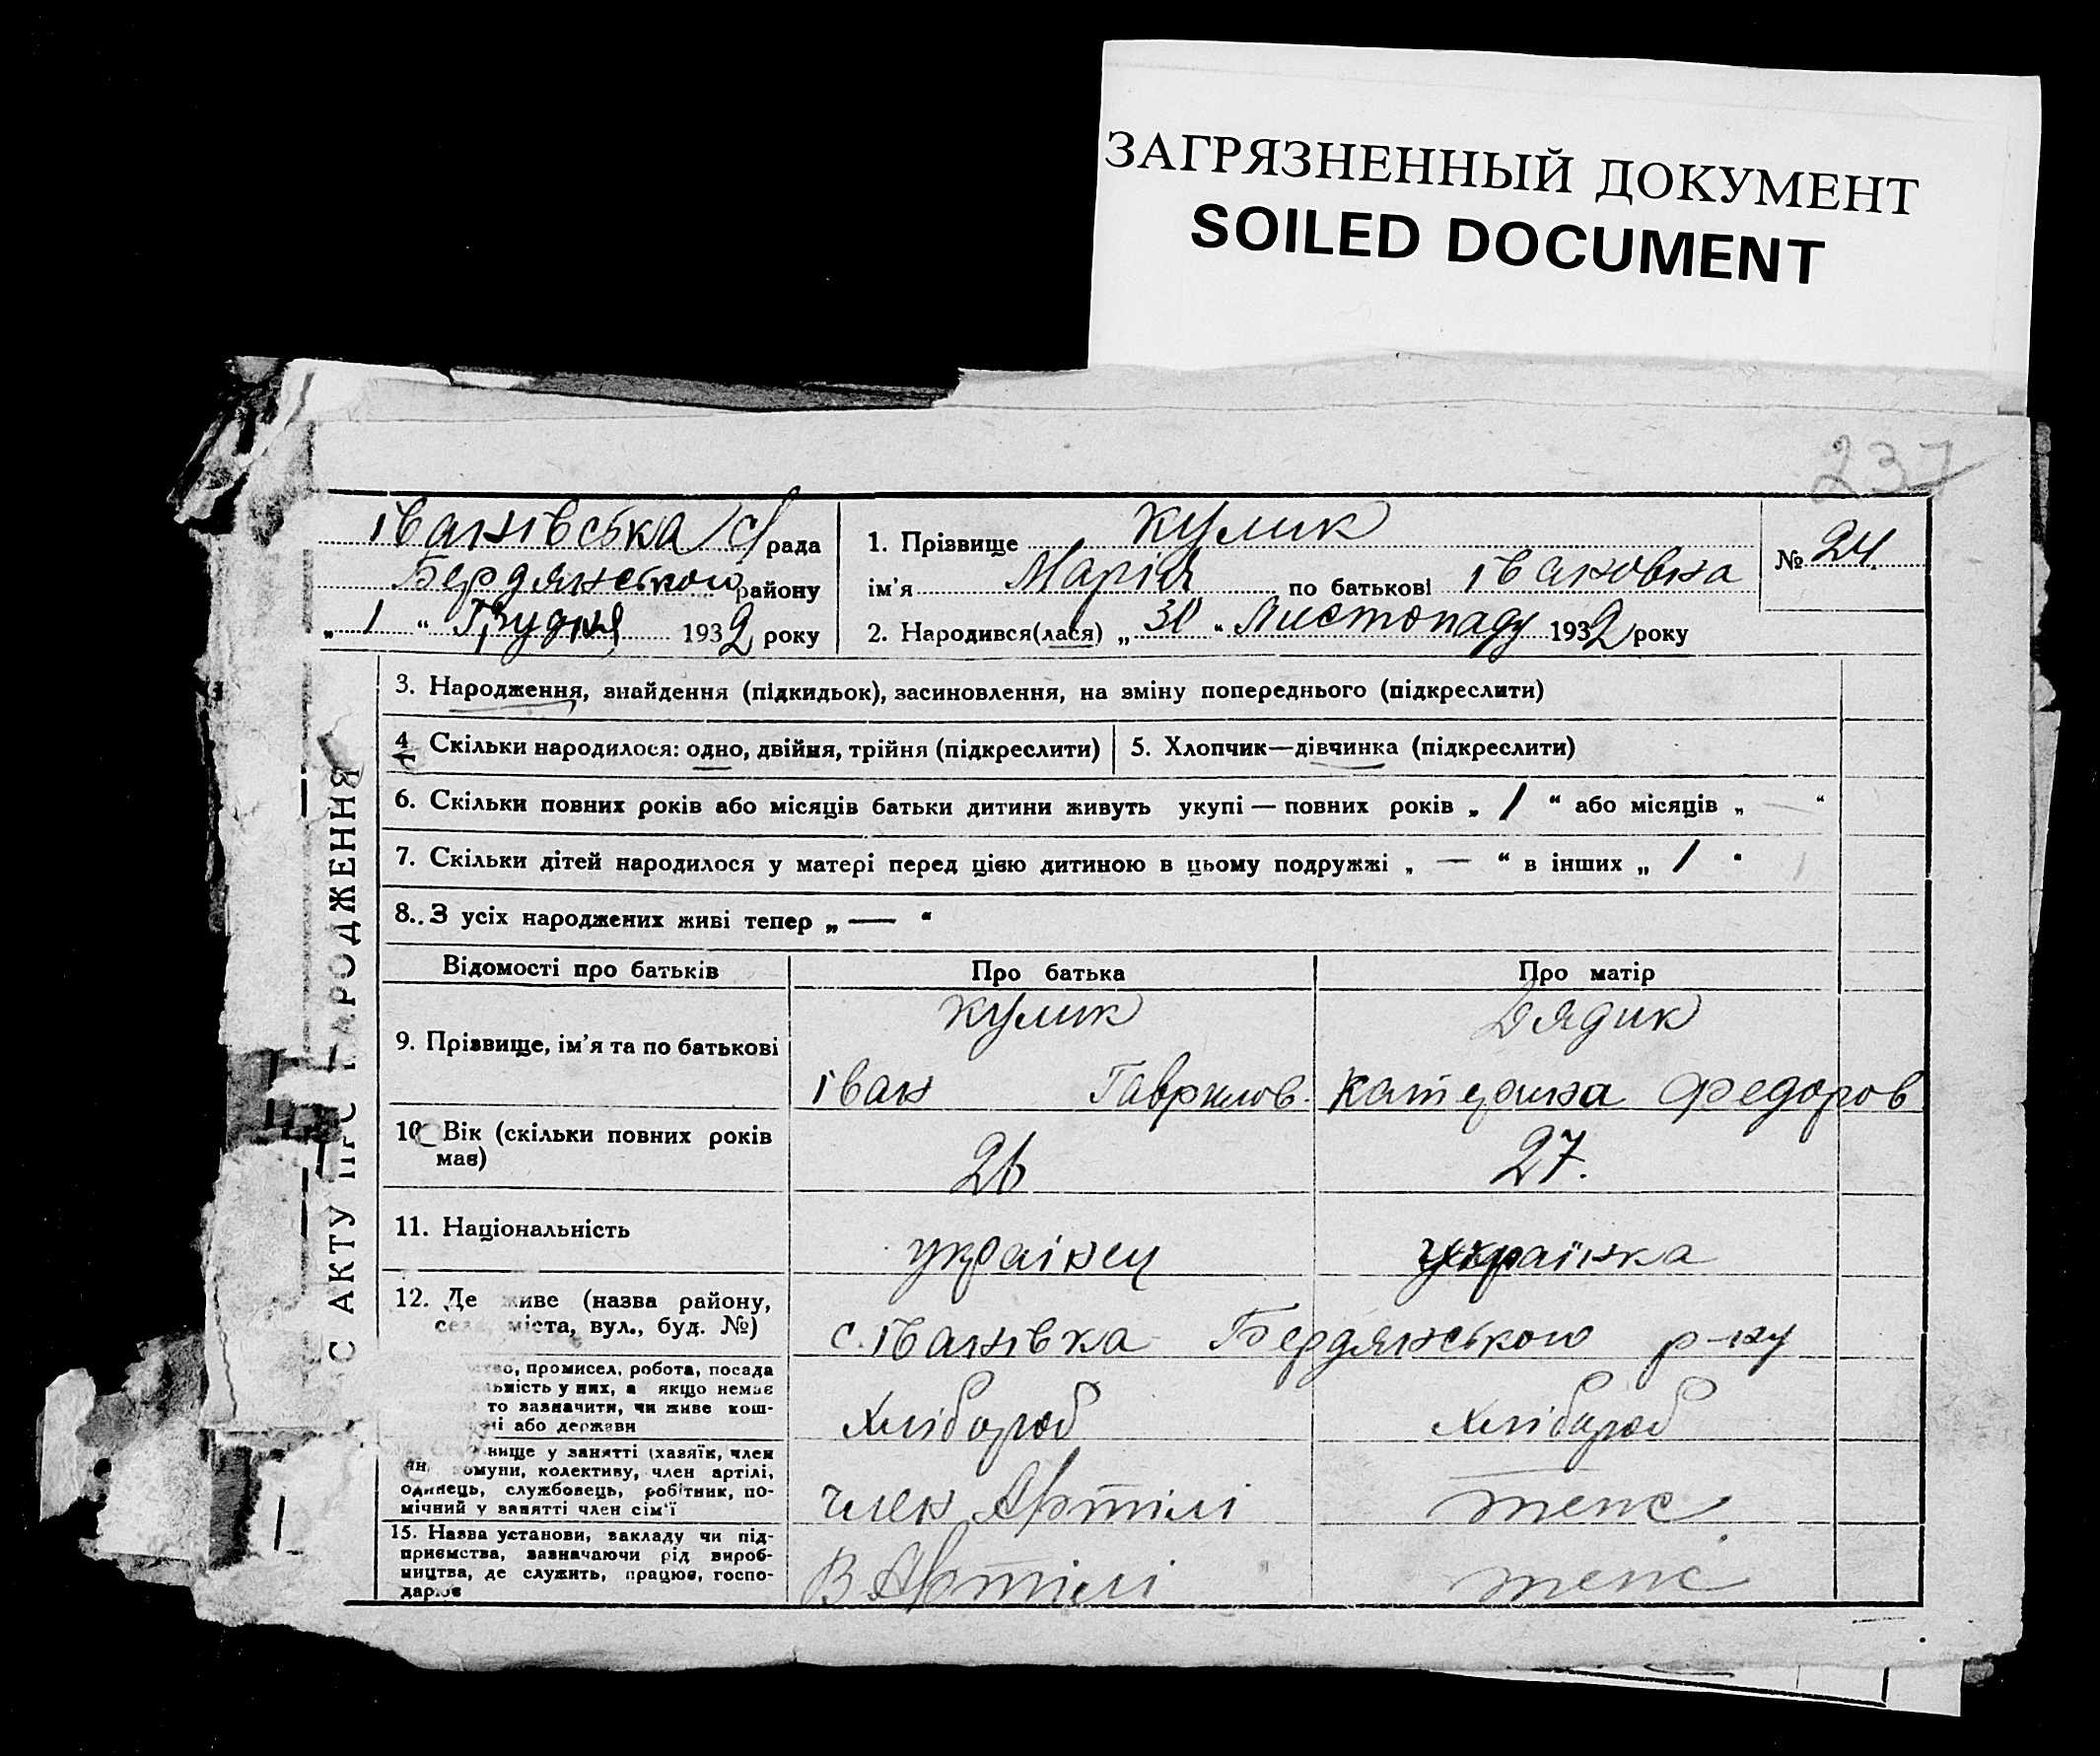 ЗАГРЯЗНЕННЫЙ ДОКУМЕНТ
SOILED DOCUMENT
237
Іванівська с/рада
Бердянського району
„ 1 “ Грудня 1932 року
1. Прізвище Кулик
ім’я Марія по батькові Івановна
2. Народився(лася) „ 30 “ Листопаду 1932 року
№ 24.
С АКТУ ПРО НАРОДЖЕННЯ
3. Народження, знайдення (підкидьок), засиновлення, на зміну попереднього (підкреслити)
4 Скільки народилося: одно, двійня, трійня (підкреслити)
5. Хлопчик—дівчинка (підкреслити)
6. Скільки повних років або місяців батьки дитини живуть укупі — повних років „ 1 “ або місяців „ — “
7. Скільки дітей народилося у матері перед цією дитиною в цьому подружжі „ — “ в інших „ 1 “
8. З усіх народжених живі тепер „ — “
Відомості про батьків Про батька Про матір
9. Прізвище, ім’я та по батькові
Кулик Дядик
Іван Гаврилов. Катерина Федоров
10 Вік (скільки повних років
має)
26 27.
11. Національність
українец українка
12. Де живе (назва району,
села, міста, вул., буд. №)
с. Іванівка Бердянського р-ну
промисел, робота, посада
у них, а якщо немає
то зазначити, чи живе кош-
або держави
Хлібороб Хлібороб
у занятті (хазяїн, член
комуни, колективу, член артілі,
одинець, службовець, робітник, по-
мічний у занятті член сім’ї
член Артілі теж
15. Назва установи, закладу чи під-
приємства, зазначаючи рід вироб-
ництва, де служить, працює, госпо-
дарює
В Артілі теж